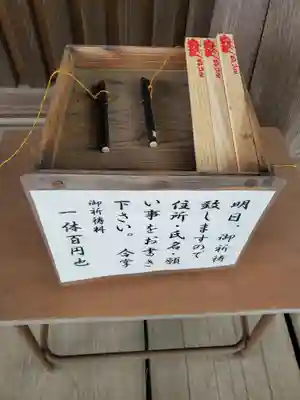 明日、御祈祷
致しますので
住所・氏名・願
い事をお書き
下さい。 合掌
御祈祷料
一体百円也